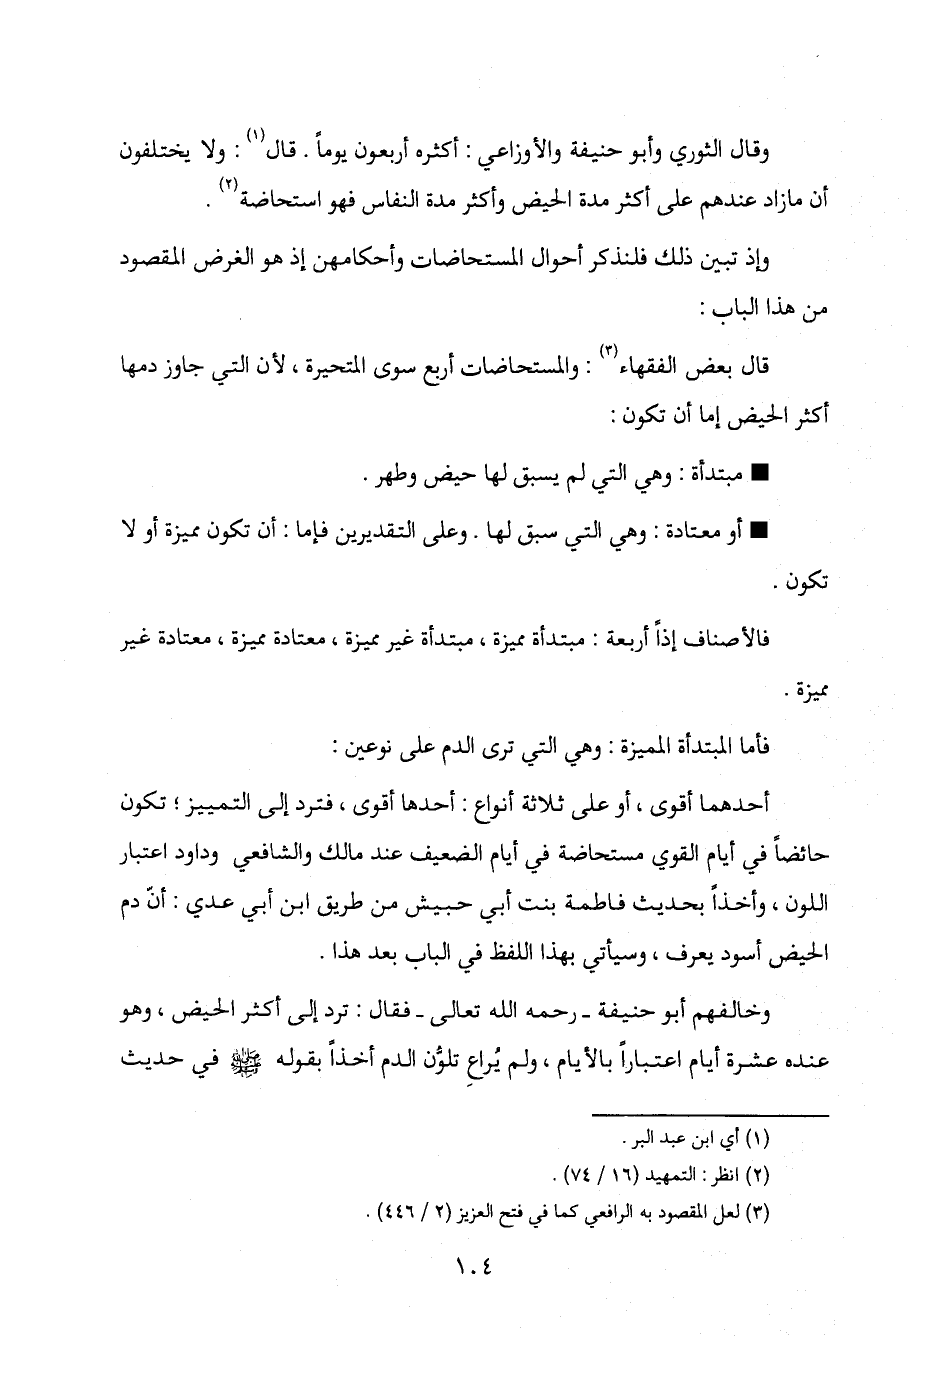 وقال الثوري وأبو حنيفة والأوزاعي : أكثره أربعون يوماً . قال(١) : ولا يختلفون
أن مازاد عندهم على أكثر مدة الحيض وأكثر مدة النفاس فهو استحاضة(٢) .
وإذ تبين ذلك فلنذكر أحوال المستحاضات وأحكامهن إذ هو الغرض المقصود
من هذا الباب :
قال بعض الفقهاء(٣) : والمستحاضات أربع سوى المتحيرة ، لأن التي جاوز دمها
أكثر الحيض إما أن تكون :
■ مبتدأة : وهي التي لم يسبق لها حيض وطهر .
■ أو معتادة : وهي التي سبق لها . وعلى التقديرين فإما : أن تكون مميزة أو لا
تكون .
فالأصناف إذاً أربعة : مبتدأة مميزة ، مبتدأة غير مميزة ، معتادة مميزة ، معتادة غير
مميزة .
فأما المبتدأة المميزة : وهي التي ترى الدم على نوعين :
أحدهما أقوى ، أو على ثلاثة أنواع : أحدها أقوى ، فترد إلى التمييز ؛ تكون
حائضاً في أيام القوي مستحاضة في أيام الضعيف عند مالك والشافعي وداود اعتبار
اللون ، وأخذاً بحديث فاطمة بنت أبي حبيش من طريق ابن أبي عدي : أنّ دم
الحيض أسود يعرف ، وسيأتي بهذا اللفظ في الباب بعد هذا .
وخالفهم أبو حنيفة ـ رحمه الله تعالى ـ فقال : ترد إلى أكثر الحيض ، وهو
عنده عشرة أيام اعتباراً بالأيام ، ولم يُراعِ تلوُّن الدم أخذاً بقوله ﷺ في حديث
(١) أي ابن عبد البر .
(٢) انظر : التمهيد (١٦ / ٧٤) .
(٣) لعل المقصود به الرافعي كما في فتح العزيز (٢ / ٤٤٦) .
١٠٤